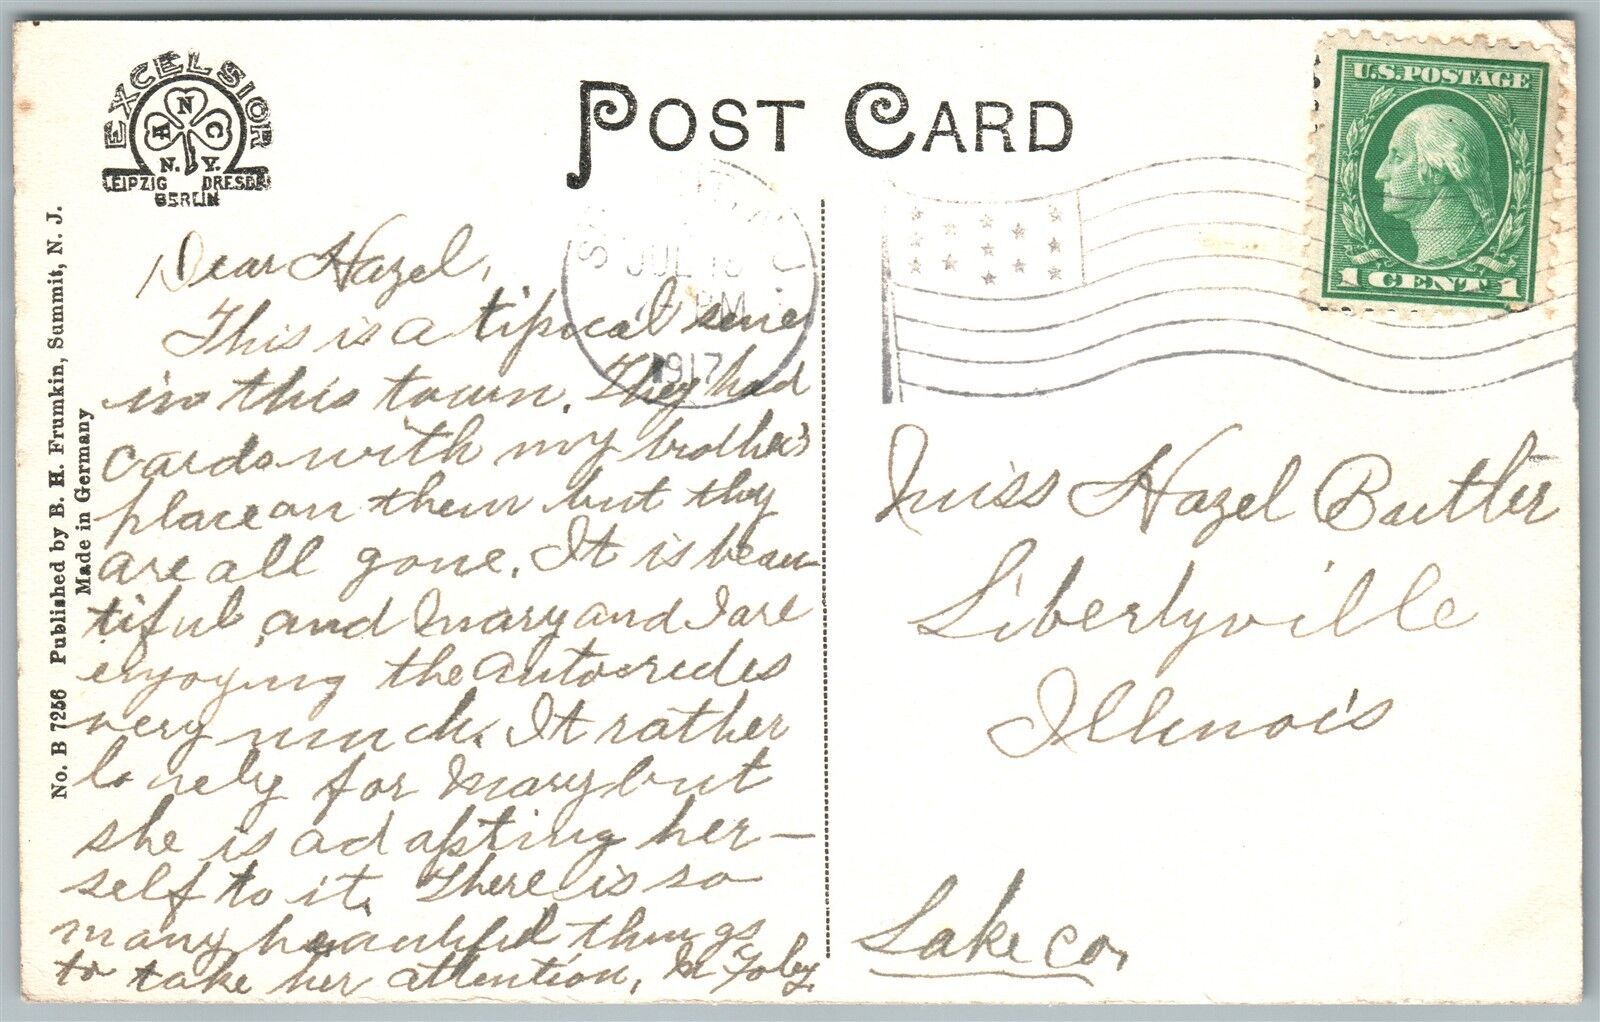 EXCELSIOR
N
A C
N. Y.
LEIPZIG DRESDEN
BERLIN
POST CARD
U.S. POSTAGE
1 CENT 1
JUL 18
PM
1917
No. B 7256 Published by B. H. Frumkin, Summit, N. J.
Made in Germany
Dear Hazel,
This is a tipical sene
in this town. They had
cards with my brother's
place on them but they
are all gone. It is beau-
tiful and Mary and I are
enjoying the auto-rides
very much. It rather
lonely for Mary but
she is adapting her-
self to it. There is so
many beautiful things
to take her attention. M Foley.
Miss Hazel Butler
Libertyville
Illinois
Lake Co.